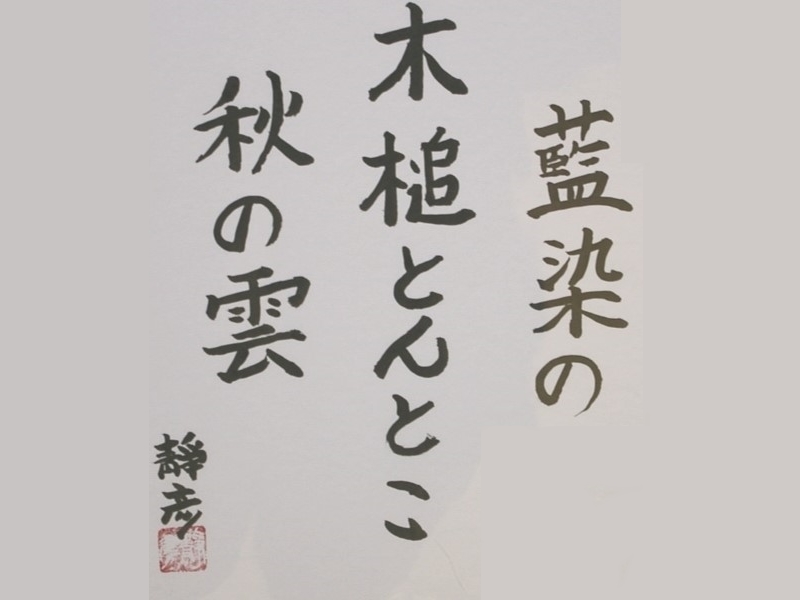 藍染の
木槌とんとこ
秋の雲
靜彦